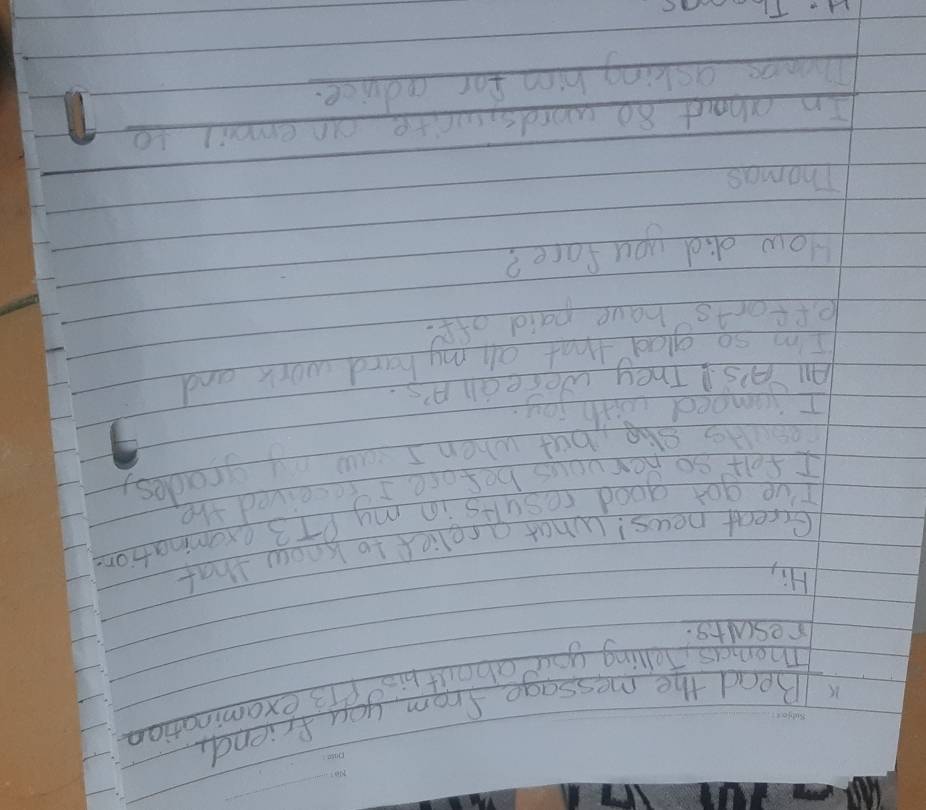 No :
Date :
Subject :
Read the message from you friend,
Thomas, Telling you about his PT3 examination
results.
Hi,
Great news! What a relief to know that
I've got good results in my PT3 examination.
I felt so nervous before I received the
results slip, but when I saw my grades,
I jumped with joy.
All A's! They wereall A's.
I'm so glad that all my hard work and
efforts have paid off.
How did you fare?
Thomas
In about 80 words, write an email to
Thomas asking him for advice.
Hi Thomas